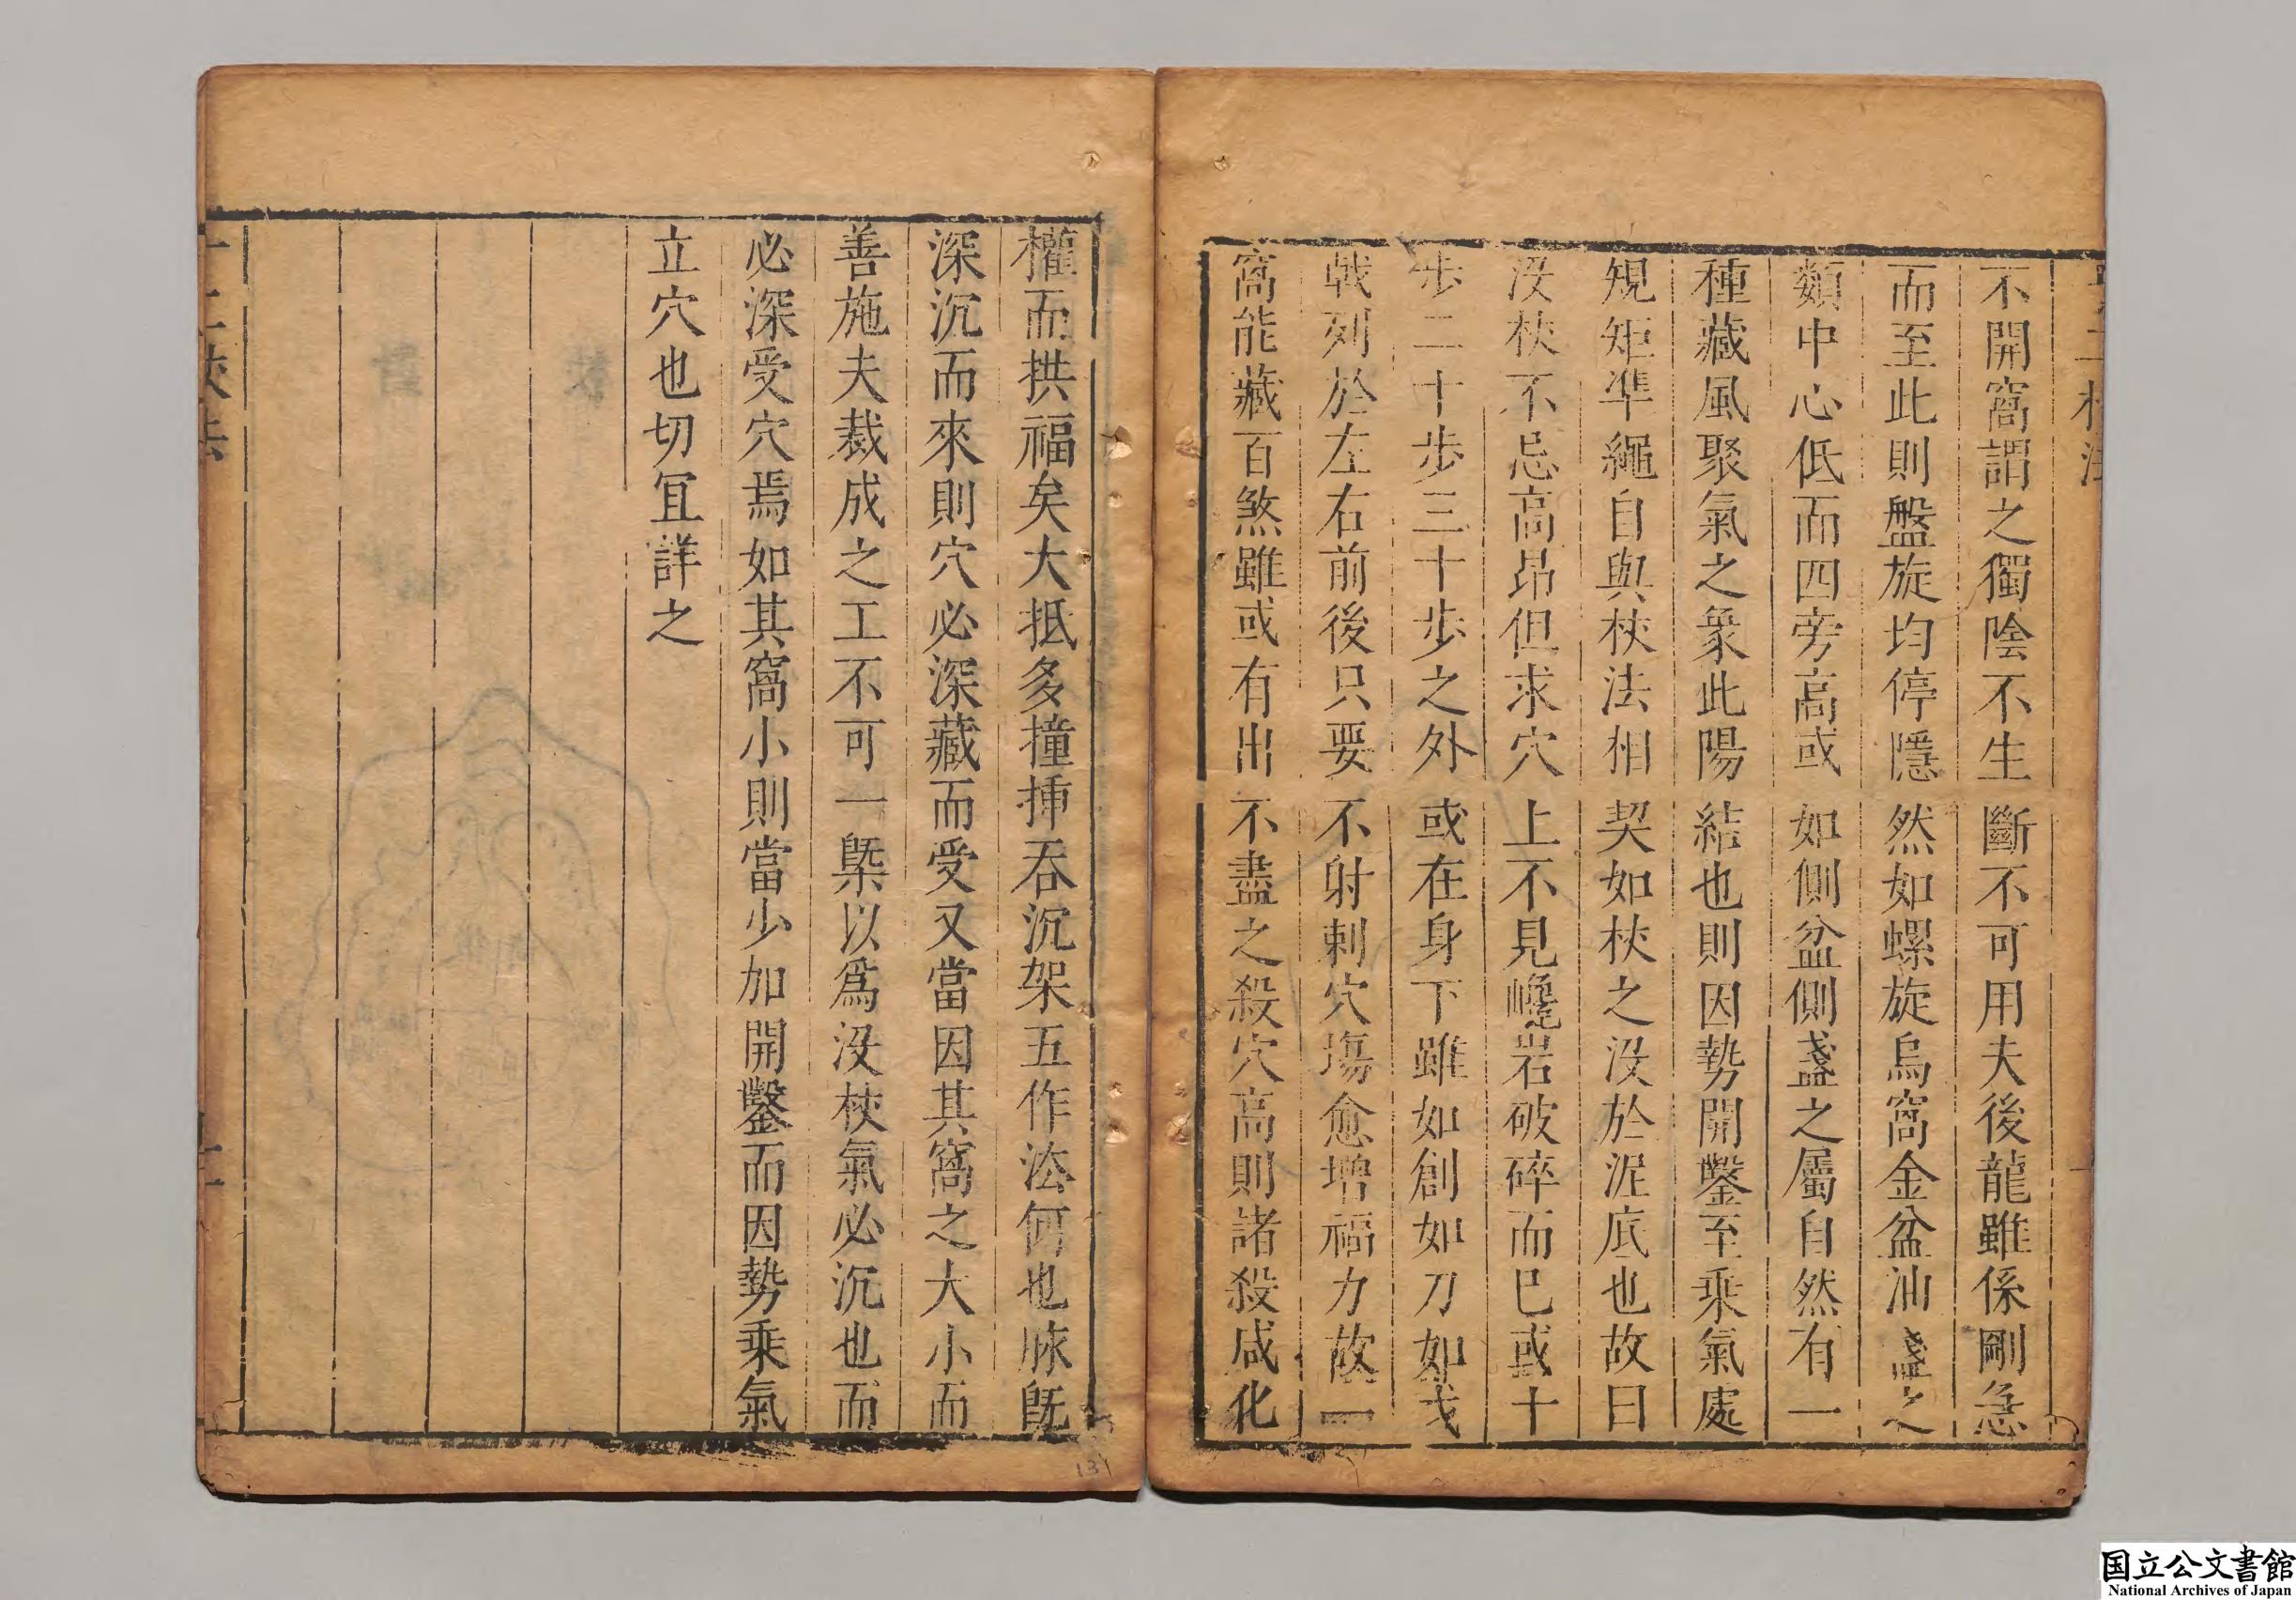 不開窩謂之獨陰不生斷不可用夫後龍雖係剛急
而至此則盤旋均停隱然如螺旋烏窩金盆油盞之
類中心低而四旁高或如側盆側盞之屬自然有一
種藏風聚氣之象此陽結也則因勢開鑿至乘氣處
規矩準繩自與杖法相契如杖之沒於泥底也故曰
沒杖不忌高昂但求穴上不見巉岩破碎而已或十
步二十步三十步之外或在身下雖如劍如刀如戈
戟列於左右前後只要不射刺穴塲愈增福力故一
窩能藏百煞雖或有出不盡之殺穴高則諸殺咸化
權而拱福矣大抵多撞挿吞沉架五作法何也脉既
深沉而來則穴必深藏而受又當因其窩之大小而
善施夫裁成之工不可一槩以爲沒杖氣必沉也而
必深受穴焉如其窩小則當少加開鑿而因勢乘氣
立穴也切宜詳之
十二杖法
十二
国立公文書館
National Archives of Japan